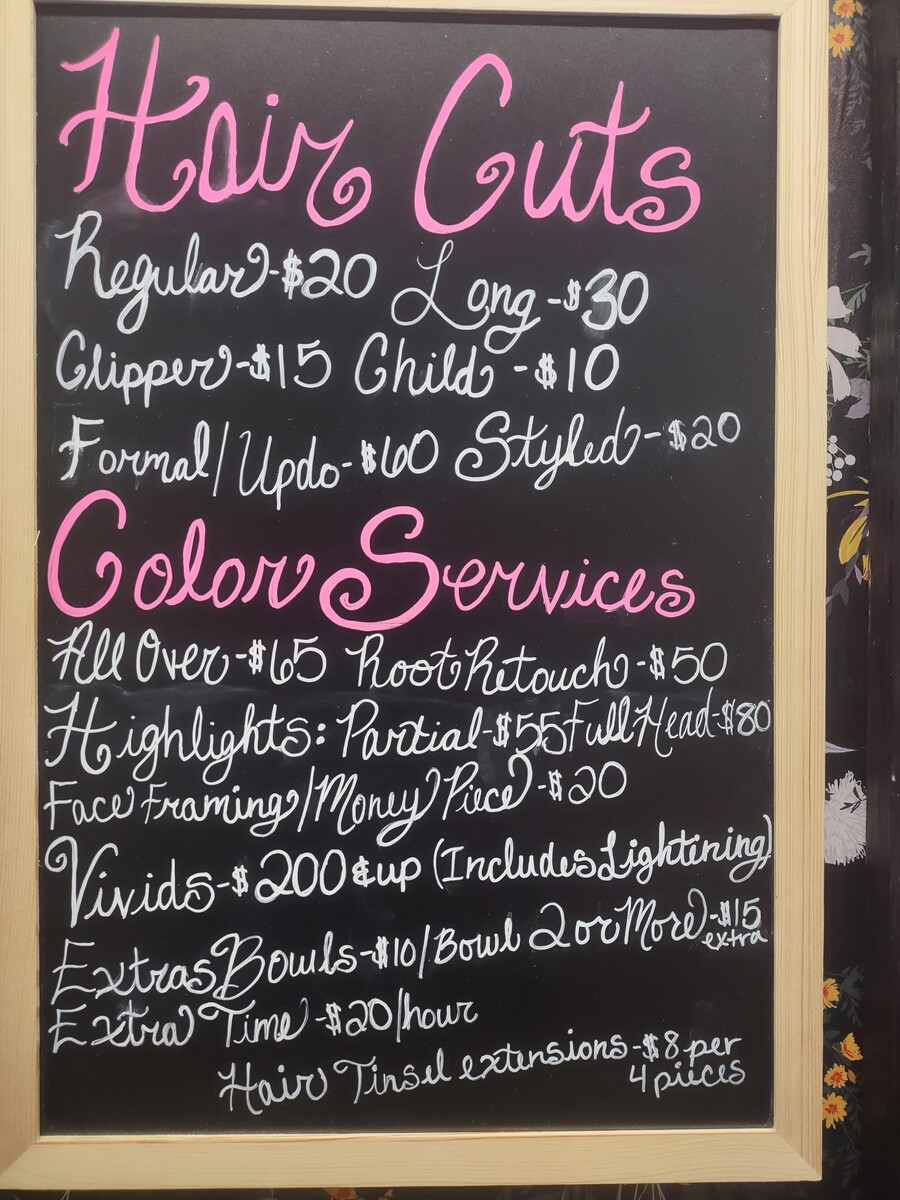 Hair Cuts
Regular-$20 Long-$30
Clipper-$15 Child-$10
Formal/Updo-$60 Styled-$20
Color Services
All Over-$65 Root Retouch-$50
Highlights: Partial-$55 Full Head-$80
Face Framing/Money Piece-$20
Vivids-$200 & up (Includes Lightening)
Extras Bowls-$10/Bowl 2 or More-$15 extra
Extra Time-$20/hour
Hair Tinsel extensions-$8 per
4 pieces